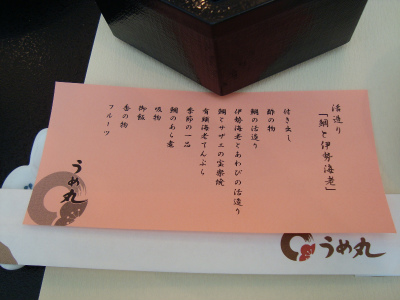 活造り
「鯛と伊勢海老」
付き出し
酢の物
鯛の活造り
伊勢海老とあわびの活造り
鯛とサザエの宝楽焼
有頭海老てんぷら
季節の一品
鯛のあら煮
吸物
御飯
香の物
フルーツ
うめ丸
うめ丸